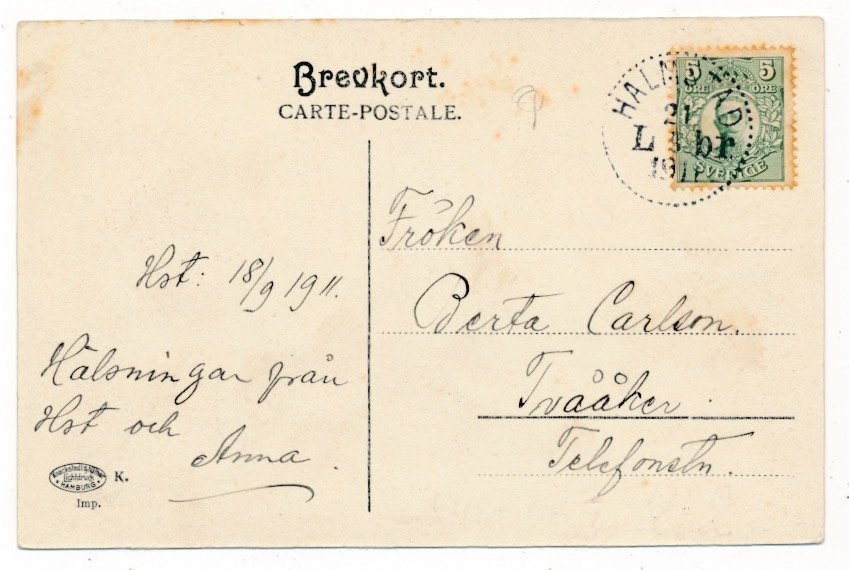 Brevkort.
CARTE-POSTALE.
HALMSTAD
21
L br
1911
5 5
ÖRE ÖRE
SVERIGE
Hst: 18/9 1911.
Hälsningar från
Hst och
Anna.
Fröken
Berta Carlson.
Tvååker
Telefonstn.
Lichtdruck
HAMBURG
K.
Imp.